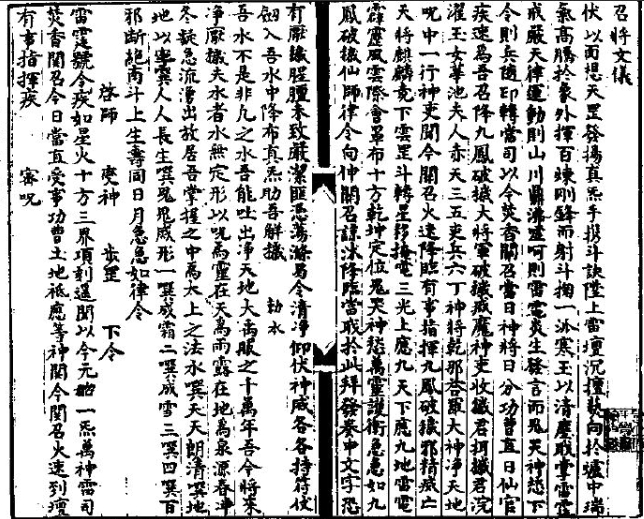 召將文儀
伏以面想天罡發揚真炁手携斗訣陞上雷壇沉擅熱向於爐中瑞
氣高騰於象外揮百煉剛鋒而射斗掬一派寒玉以清塵取壹雷霆
戒嚴天律運動則山川鼎沸噓呵則雷電炎生發言而鬼哭神愁下
令則兵隨印轉當司以今焚香關召當日神將日分功曹直日仙官
疾速為吾召降九鳳破穢大將軍破穢威魔神吏收穢君捍穢君浣
濯玉女華池夫人赤天三五吏兵六丁神將乾那答那大神淨天地
呪中一行神吏聞今關召火速降臨有事指揮九鳳破穢邪精滅亡
天將麒麟竟下雲罡斗轉星移掩電三光上應九天下應九地雷電
霹靂風雲際會罩布十方乾坤定位鬼哭神愁萬靈護衛急急如九
鳳破穢仙師律令向伸關召諒沐降臨當職於此拜發奏申文字恐
有厭穢腥膻未致嚴潔匪思蕩滌曷令清淨仰伏神威各各持符仗
劍入吾水中降布真炁助吾解穢 勅水
吾水不是非凡之水吾能吐出淨天地大禹服之十萬年吾今將來
淨厭穢夫水者水無定形以呪為靈在天為雨露在地為泉源春冲
冬凝急流湧出故居吾掌握之中為太上之法水噀天天朗清噀地
地以寧噀人人長生噀鬼鬼滅形一噀成霜二噀成雪三噀四噀百
邪斷絕南斗上生壽同日月急急如律令
啓師 變神 步罡 下令
雷霆號令疾如星火十方三界頃刻遙聞以今元始一炁萬神雷司
焚香關召今日當直受事功曹土地祇應等神聞今關召火速到壇
有事指揮疾 密呪